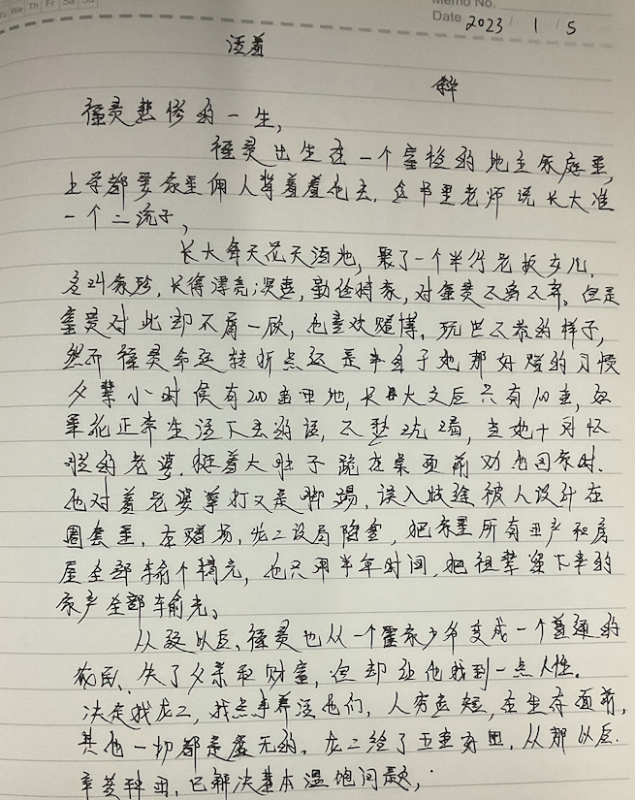 Tu We Th Fr Sa Su
Memo No.
Date 2023 / 1 / 5
活着
福贵悲惨的一生,
福贵出生在一个富裕的地主家庭里,
上学都要家里佣人背着着他去,念书里老师说长大准
一个二流子,
长大每天花天酒地,娶了一个半仔老板女儿,
名叫家珍,长得漂亮;溟惠,勤俭持家,对福贵不离不弃,但是
富贵对此却不屑一顾,他喜欢赌博,玩世不恭的样子,
然而福贵命运转折点还是来自于他那好赌的习惯
父辈小时候有200亩田地,长大父后只有100亩,如
果能正常生活下去的话,不愁吃喝,当她十月怀
胎的老婆,挺着大肚子跪在桌面前劝他回家时,
他对着老婆拳打又是脚踢,误入歧途被人设计在
圈套里,在赌场,龙二设局陷害,把家里所有田产和房
屋全部输个精光,他只用半年时间,把祖辈留下来的
家产全部输光。
从这以后,福贵也从一个富家少爷变成一个普通的
农民,失了父亲和财富,但却让他找到一点人性。
决定找龙二,找点事养活他们,人穷志短,在生存面前,
其他一切都是虚无的,龙二给了五亩穷田,从那以后,
辛苦种田,已解决基本温饱问题,